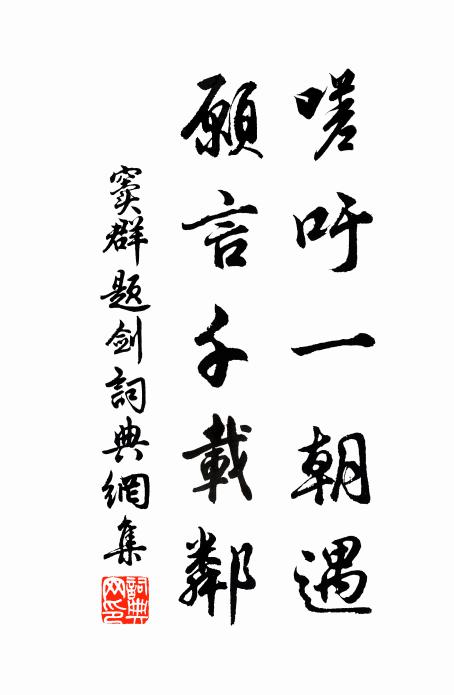 嗟吁一朝遇
願言千載鄰
竇群題劍詞典網集
詞典网印